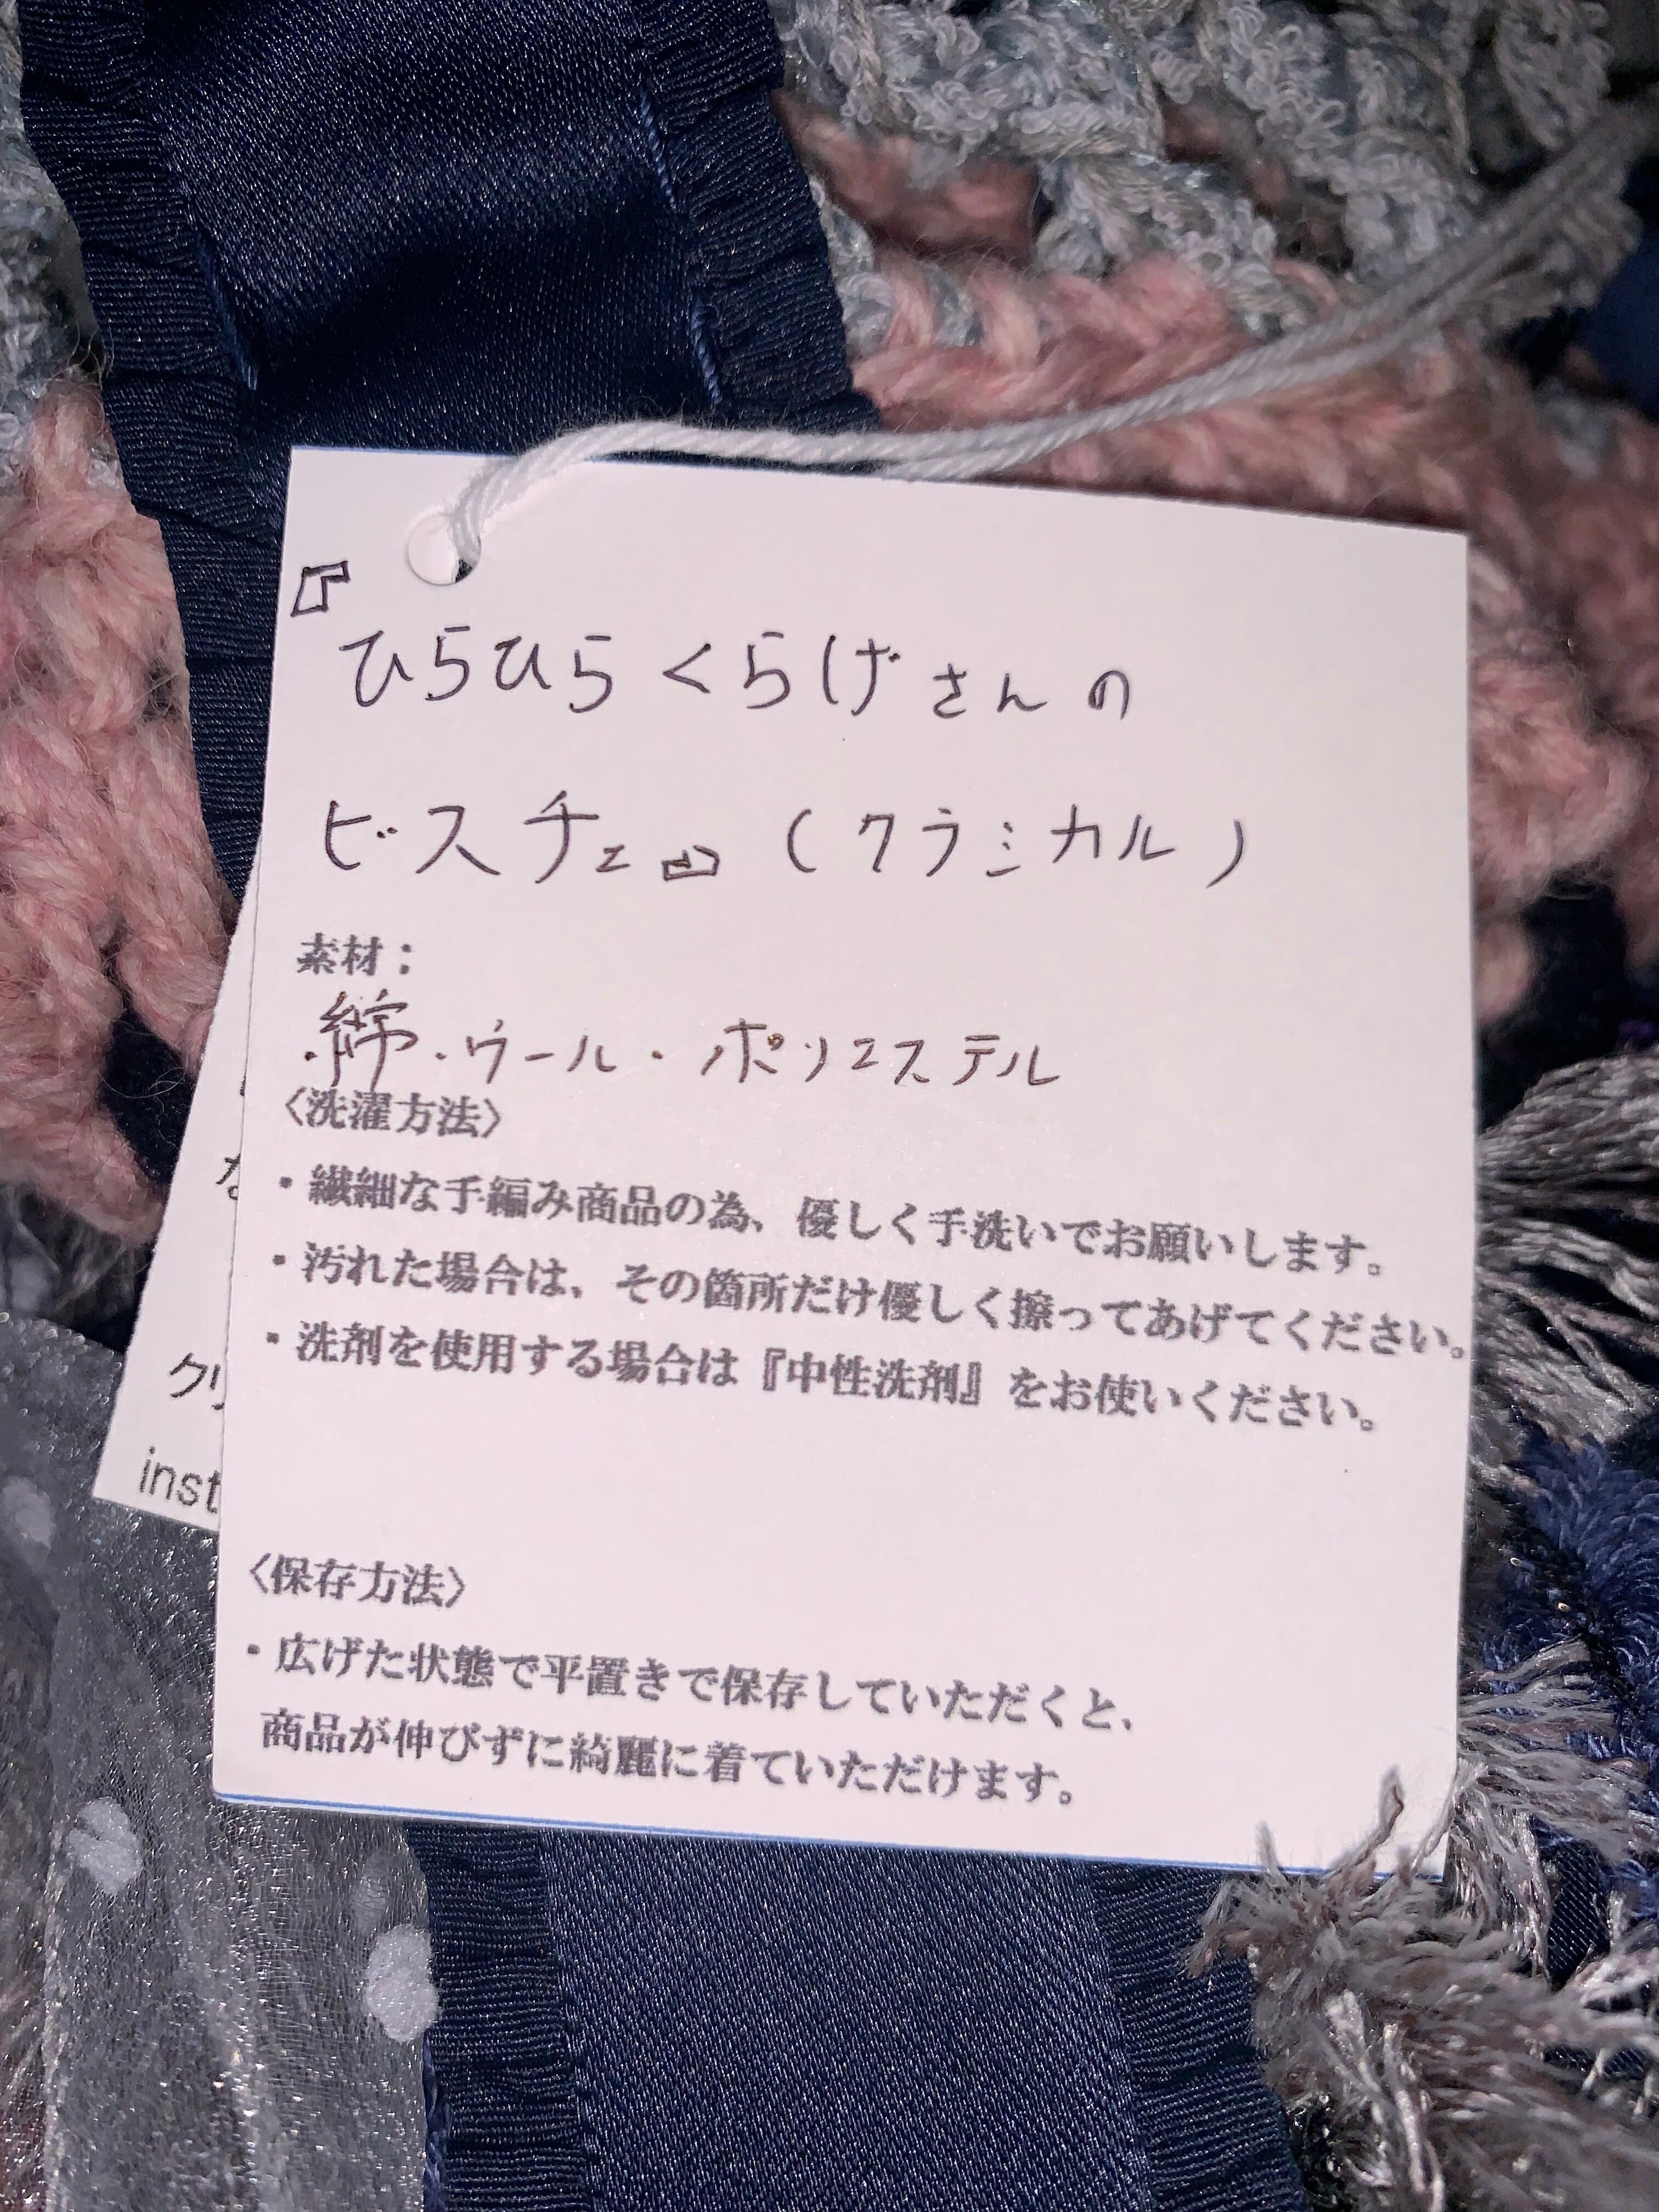 『ひらひらくらげさんの
ビスチェ』(クラシカル)
素材：
綿・ウール・ポリエステル
〈洗濯方法〉
・繊細な手編み商品の為、優しく手洗いでお願いします。
・汚れた場合は、その箇所だけ優しく擦ってあげてください。
・洗剤を使用する場合は『中性洗剤』をお使いください。
〈保存方法〉
・広げた状態で平置きで保存していただくと、
商品が伸びずに綺麗に着ていただけます。
な
クリ
inst